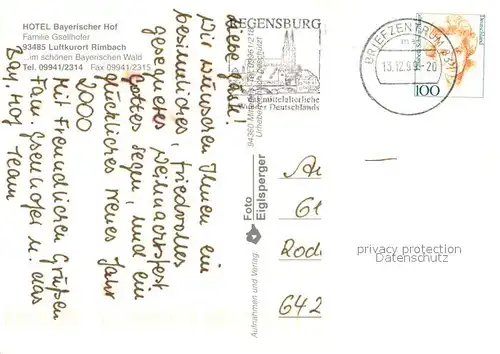 HOTEL Bayerischer Hof
Familie Gsellhofer
93485 Luftkurort Rimbach
...im schönen Bayerischen Wald
Tel. 09941/2314 Fax 09941/2315
Liebe Gäste!
Wir wünschen Ihnen ein
besinnliches, friedvolles
gesegnetes Weihnachtsfest
Gottes Segen, und ein
glückliches neues Jahr
2000
Mit Freundlichen Grüßen
Fam. Gsellhofer u. das
Bay. Hof Team
REGENSBURG
mittelalterliche
Deutschlands
BRIEFZENTRUM 93
13.12.99-20
100
Foto
Eiglsperger
Aufnahmen und Verlag:
Rod
642
privacy protection
Datenschutz